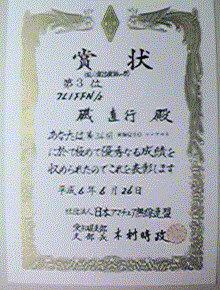 賞状
第3位
7L1FFN/2
磯 直行 殿
あなたは第
に於て極めて優秀なる成績を
収められたのでこれを表彰します
平成6年6月26日
社団法人日本アマチュア無線連盟
支部長 木村時政